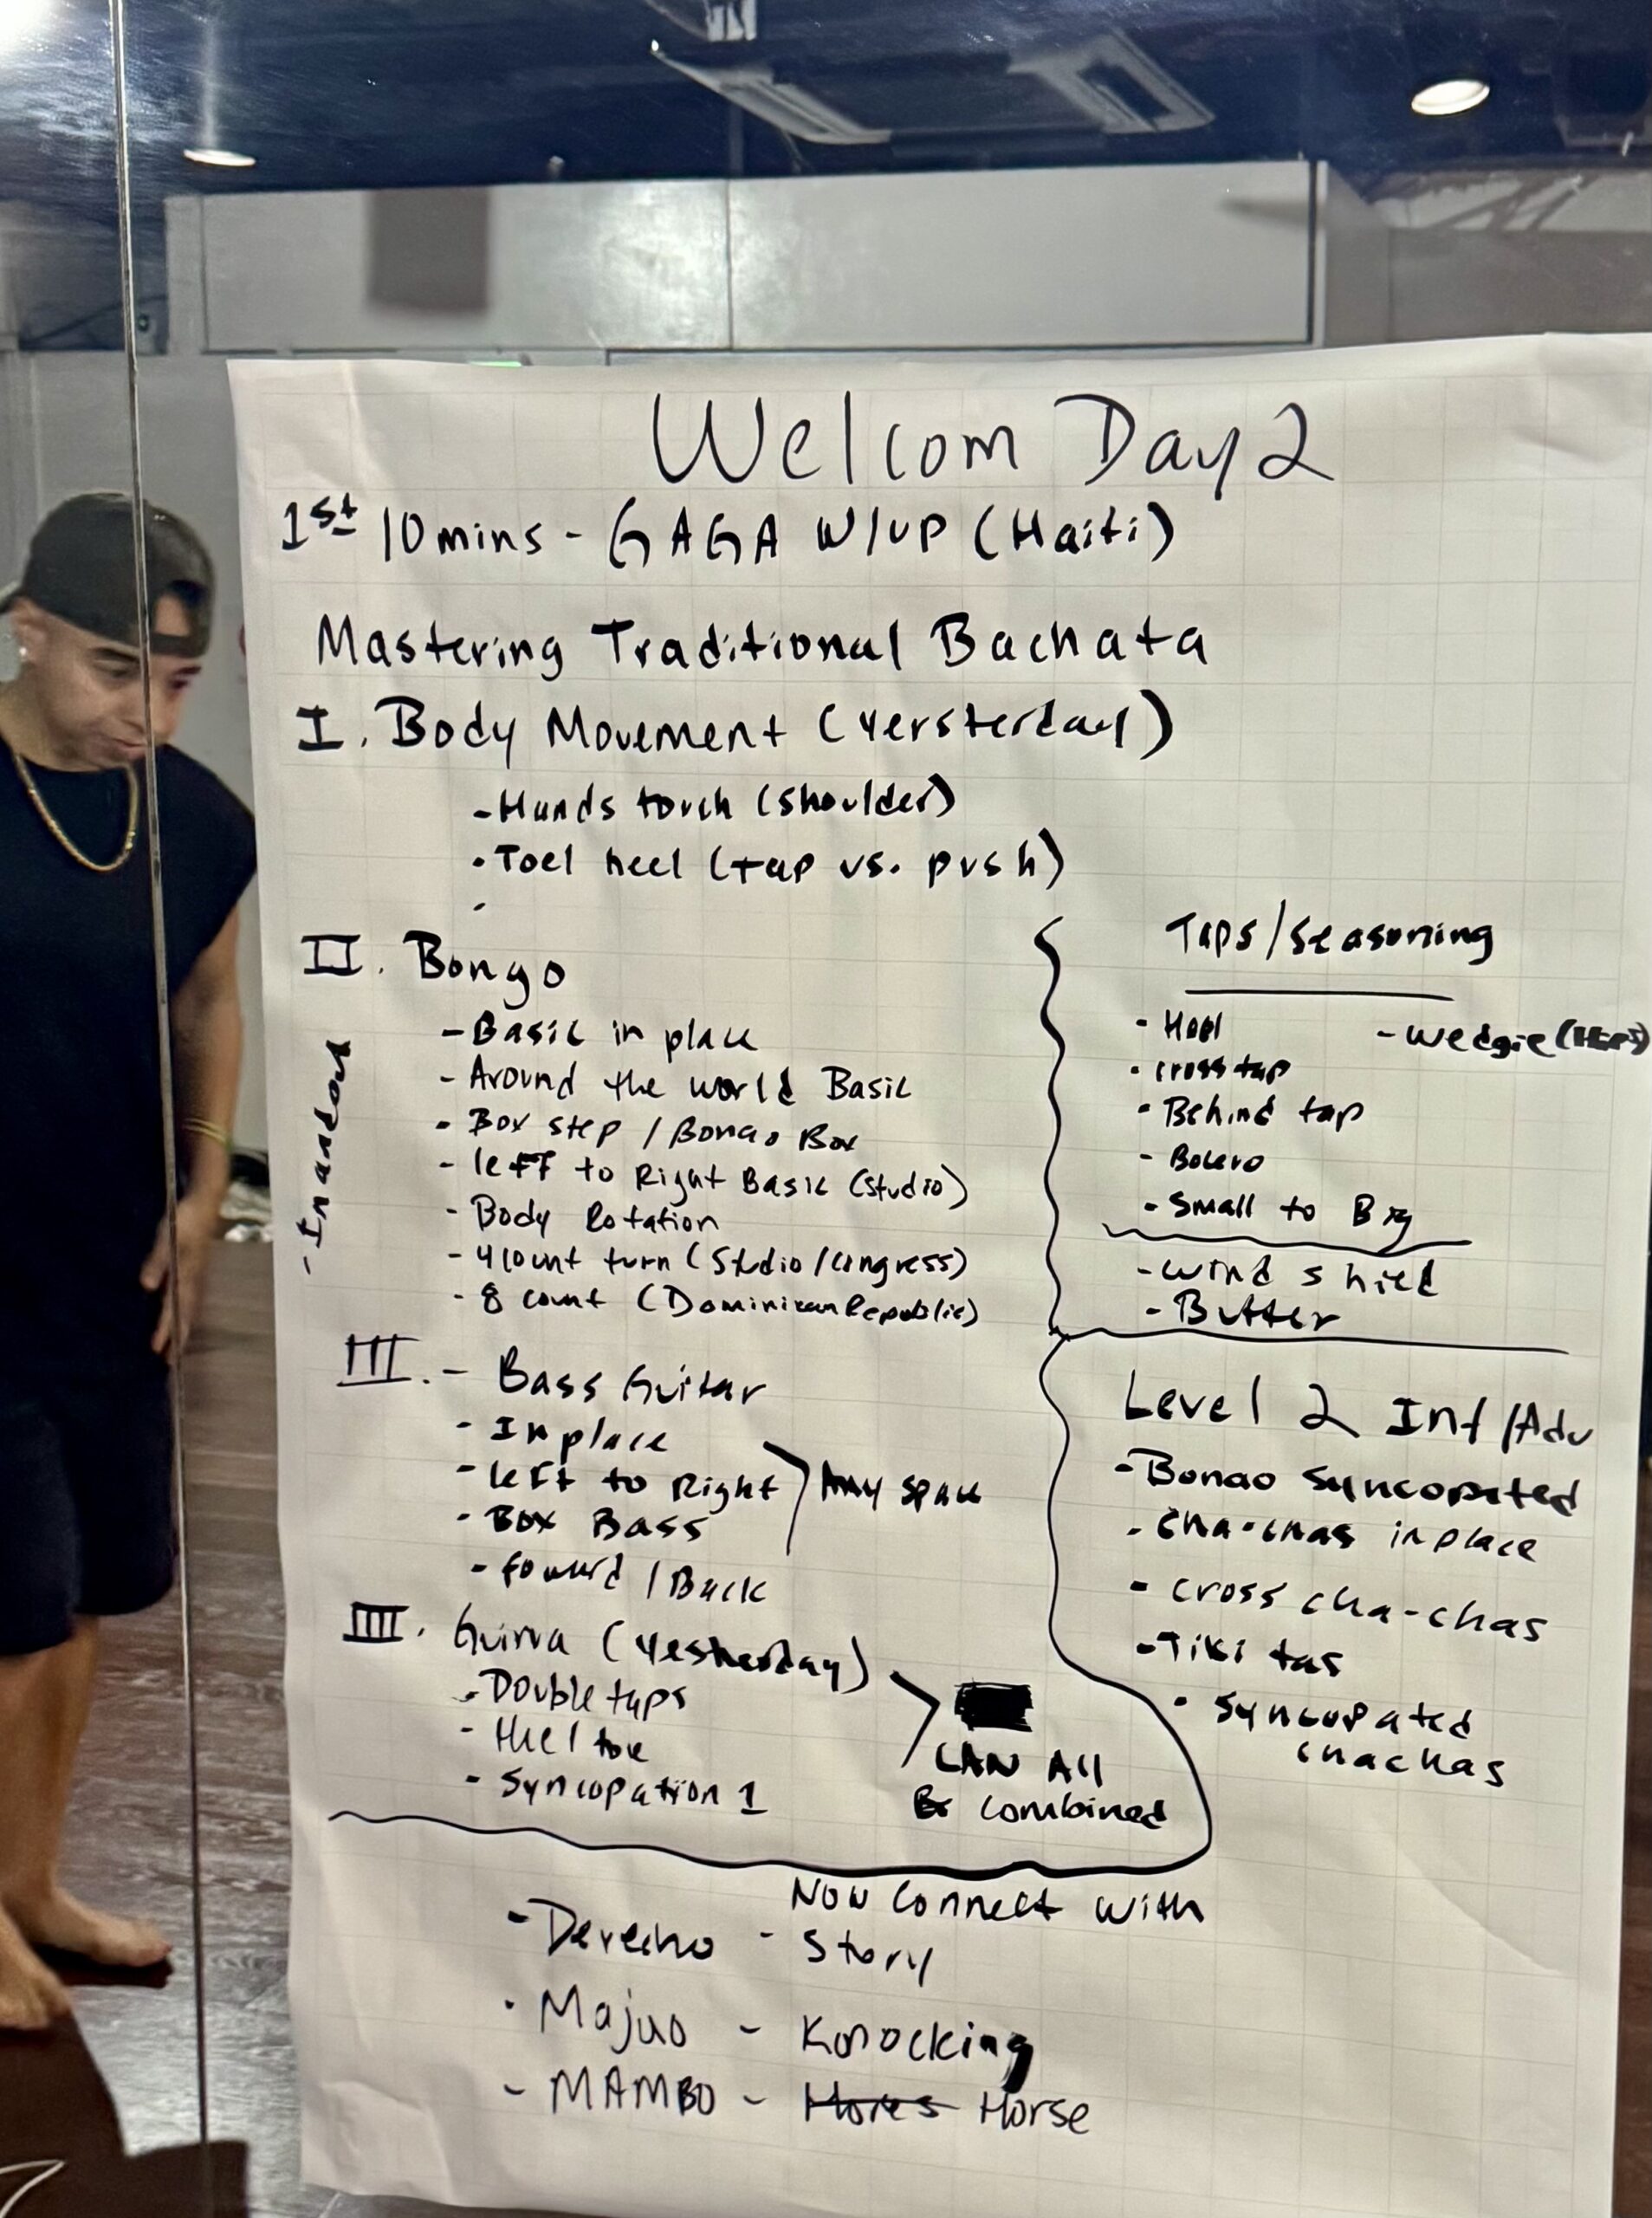 Welcom Day 2
1st 10 mins - GAGA W/UP (Haiti)
Mastering Traditional Bachata
I. Body Movement (Yersterday)
- Hands torch (shoulder)
• Toel heel (tap vs. push)
-
II. Bongo
- Basic in place
- Around the world Basic
- Box step / Bonao Box
- left to Right Basic (Studio)
- Body Rotation
- 4 count turn (Studio/Congress)
- 8 count (Dominican Republic)
- In and out
Taps/Seasoning
• Heel
- Wedgie (Hips)
• cross tap
• Behind tap
- Bolero
- Small to Big
- wind shied
- Butter
III. - Bass Guitar
- In place
- left to Right
- Box Bass
- foward / Back
Any space
IIII. Guirra (Yesterday)
- Double taps
- Heel toe
- Syncopation 1
CAN All
combined
Level 2 Int/Adv
- Bonao Syncopated
- Cha-chas in place
- cross cha-chas
- Tiki tas
• Syncopated
chachas
Now Connect with
- Derecho - Story
• Majao - Knocking
- MAMBO - Hores Horse